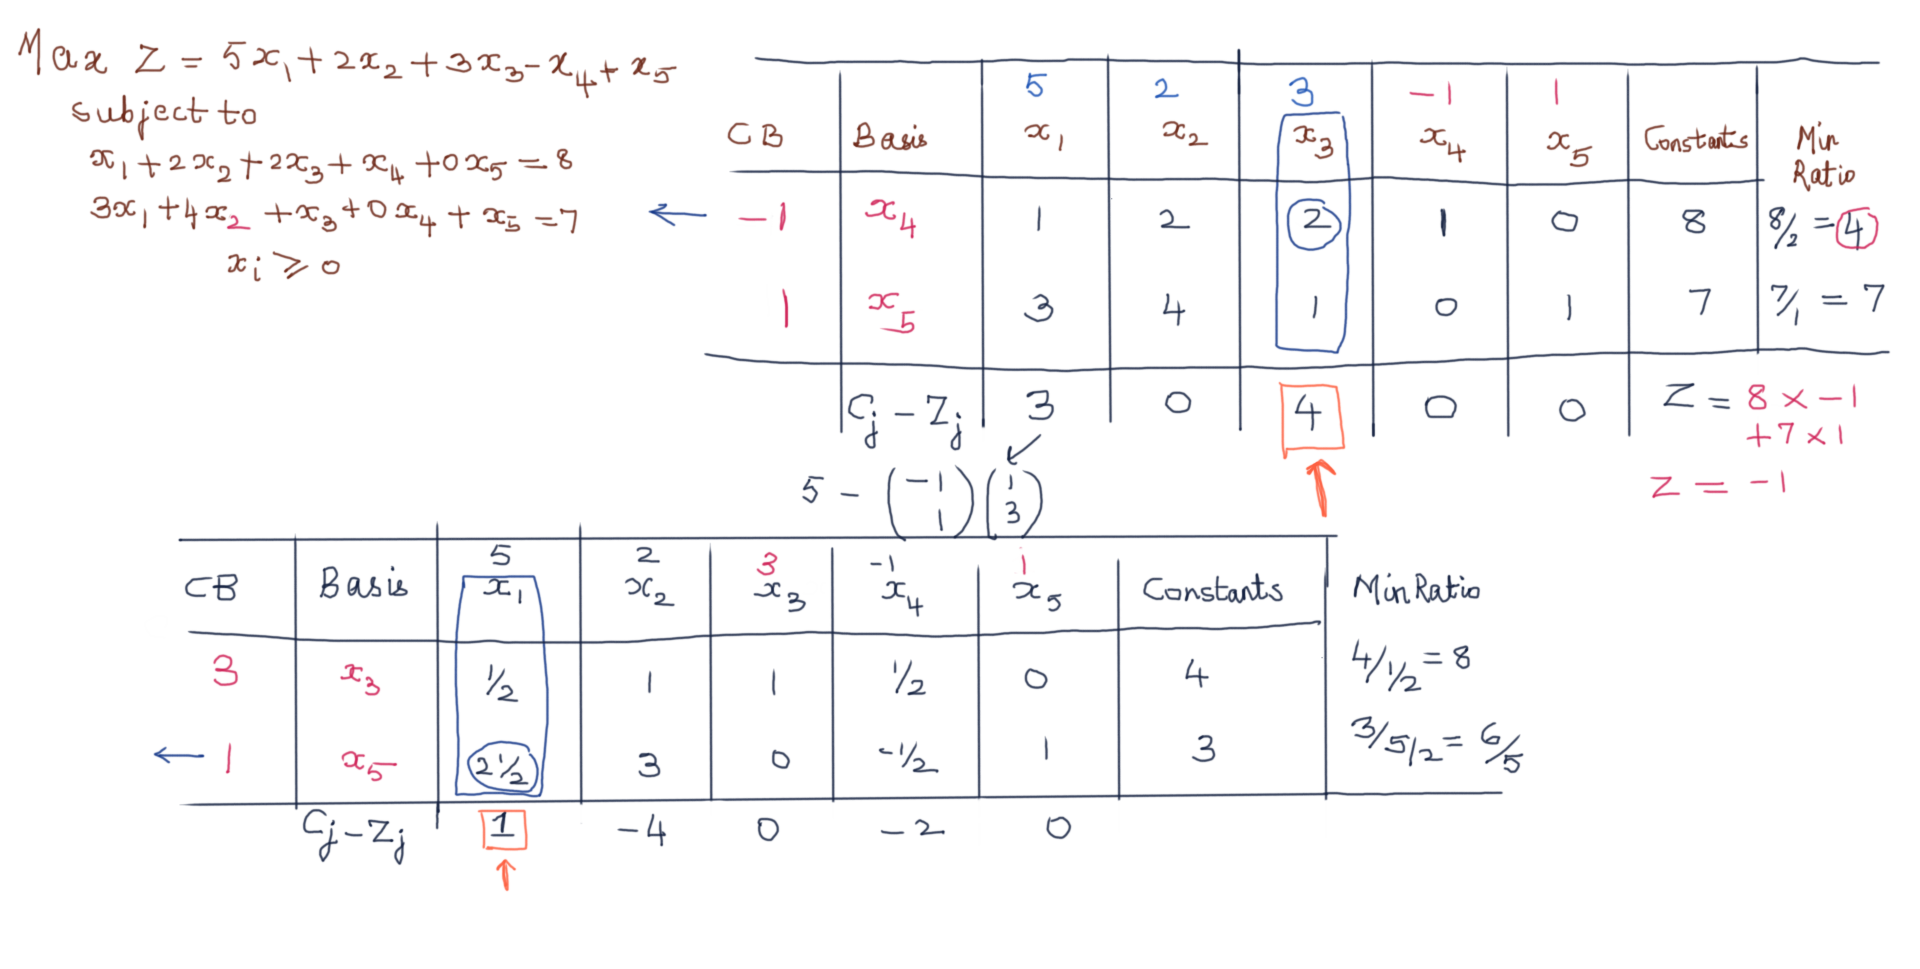 Max Z = 5x₁ + 2x₂ + 3x₃ - x₄ + x₅
subject to
x₁ + 2x₂ + 2x₃ + x₄ + 0x₅ = 8
3x₁ + 4x₂ + x₃ + 0x₄ + x₅ = 7
xᵢ ⩾ 0
5 2 3 -1 1
CB Basis x₁ x₂ x₃ x₄ x₅ Constants Min Ratio
← -1 x₄ 1 2 2 1 0 8 8/2 = 4
1 x₅ 3 4 1 0 1 7 7/1 = 7
Cj - Zj 3 0 4 0 0 Z = 8 × -1
+ 7 × 1
Z = -1
5 - (-1 1) (1 3)
5 2 3 -1 1
CB Basis x₁ x₂ x₃ x₄ x₅ Constants Min Ratio
3 x₃ 1/2 1 1 1/2 0 4 4/1/2 = 8
← 1 x₅ 2 1/2 3 0 -1/2 1 3 3/5/2 = 6/5
Cj - Zj 1 -4 0 -2 0